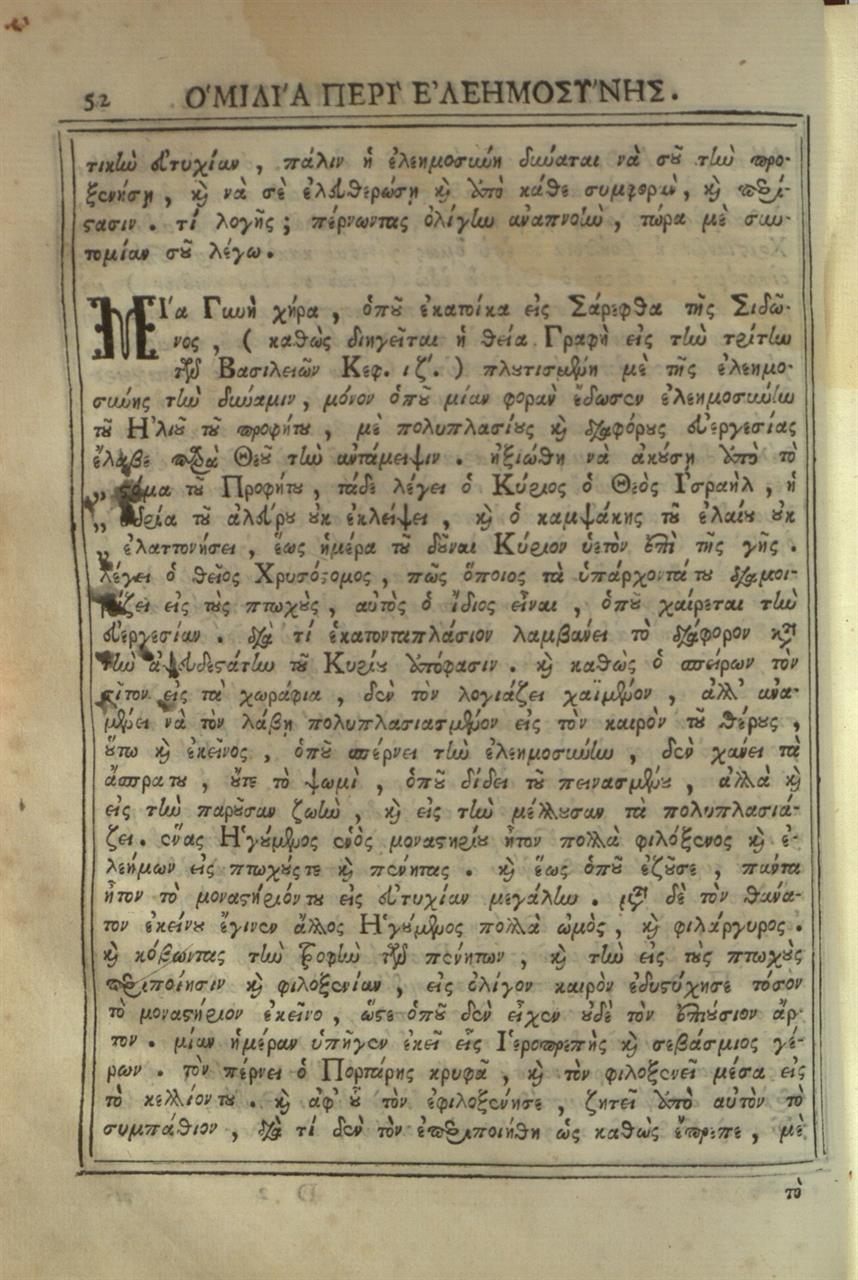 52 ΟʹΜΙΛΙʹΑ ΠΕΡΙ` ΕʼΛΕΗΜΟΣΥʹΝΗΣ.
τικὴν εὐτυχίαν, πάλιν ἡ ἐλεημοσύνη δύναται νὰ σοῦ τὴν προ-
ξενήσῃ, καὶ νὰ σὲ ἐλευθερώσῃ καὶ ἀπὸ κάθε συμφορὰν, καὶ περί-
στασιν. τί λογῆς; πέρνωντας ὀλίγην ἀναπνοὴν, τώρα μὲ συν-
τομίαν σοῦ λέγω.
ΜΙʹα Γυνὴ χήρα, ὁποῦ ἐκατοίκα εἰς Σάρεφθα τῆς Σιδῶ-
νος, (καθὼς διηγεῖται ἡ θεία Γραφὴ εἰς τὴν τρίτην
τῶν Βασιλειῶν Κεφ. ιζʹ.) πλουτισμένη μὲ τῆς ἐλεημο-
σύνης τὴν δύναμιν, μόνον ὁποῦ μίαν φορὰν ἔδωσεν ἐλεημοσύνην
τοῦ Ηʼλιοῦ τοῦ προφήτου, μὲ πολυπλασίους καὶ διαφόρους εὐεργεσίας
ἔλαβε παρὰ Θεοῦ τὴν ἀντάμειψιν. ἠξιώθη νὰ ἀκούσῃ ἀπὸ τὸ
„ στόμα τοῦ Προφήτου, τάδε λέγει ὁ Κύριος ὁ Θεὸς Ἰσραὴλ, ἡ
„ ὑδρία τοῦ ἀλεύρου οὐκ ἐκλείψει, καὶ ὁ καμψάκης τοῦ ἐλαίου οὐκ
„ ἐλαττονήσει, ἕως ἡμέρα τοῦ δοῦναι Κύριον ὑετὸν ἐπὶ τῆς γῆς.
λέγει ὁ θεῖος Χρυσόστομος, πῶς ὅποιος τὰ ὑπάρχοντάτου διαμοι-
ράζει εἰς τοὺς πτωχοὺς, αὐτὸς ὁ ἴδιος εἶναι, ὁποῦ χαίρεται τὴν
εὐεργεσίαν. διὰ τί ἑκατονταπλάσιον λαμβάνει τὸ διάφορον κατὰ
τὴν ἀψευδεστάτην τοῦ Κυρίου ἀπόφασιν. καὶ καθὼς ὁ σπείρων τὸν
σῖτον εἰς τὰ χωράφια, δὲν τὸν λογιάζει χαϊμένον, ἀλλ' ἀνα-
μένει νὰ τὸν λάβῃ πολυπλασιασμένον εἰς τὸν καιρὸν τοῦ θέρους,
οὕτω καὶ ἐκεῖνος, ὁποῦ σπέρνει τὴν ἐλεημοσύνην, δὲν χάνει τὰ
ἄσπρατου, οὔτε τὸ ψωμὶ, ὁποῦ δίδει τοῦ πεινασμένου, ἀλλὰ καὶ
εἰς τὴν παροῦσαν ζωὴν, καὶ εἰς τὴν μέλλουσαν τὰ πολυπλασιά-
ζει. ἕνας Ηʽγούμενος ἑνὸς μοναστηρίου ἦτον πολλὰ φιλόξενος καὶ ἐ-
λεήμων εἰς πτωχούςτε καὶ πένητας. καὶ ἕως ὁποῦ ἐζοῦσε, πάντα
ἦτον τὸ μοναστήριόντου εἰς εὐτυχίαν μεγάλην. μετὰ δὲ τὸν θάνα-
τον ἐκείνου ἔγινεν ἄλλος Ηʽγούμενος πολλὰ ὠμὸς, καὶ φιλάργυρος.
καὶ κόβωντας τὴν τροφὴν τῶν πενήτων, καὶ τὴν εἰς τοὺς πτωχοὺς
περιποίησιν καὶ φιλοξενίαν, εἰς ὀλίγον καιρὸν ἐδυστύχησε τόσον
τὸ μοναστήριον ἐκεῖνο, ὥστε ὁποῦ δὲν εἶχεν οὐδὲ τὸν ἐπιούσιον ἄρ-
τον. μίαν ἡμέραν ὑπῆγεν ἐκεῖ εἷς Ἱεροπρεπὴς καὶ σεβάσμιος γέ-
ρων. τὸν πέρνει ὁ Πορτάρης κρυφᾶ, καὶ τὸν φιλοξενεῖ μέσα εἰς
τὸ κελλίοντου. καὶ ἀφ' οὗ τὸν ἐφιλοξένησε, ζητεῖ ἀπὸ αὐτὸν τὸ
συμπάθιον, διὰ τί δὲν τὸν ἐπεριποιήθη ὡς καθὼς ἔπρεπε, μὲ
τὸ